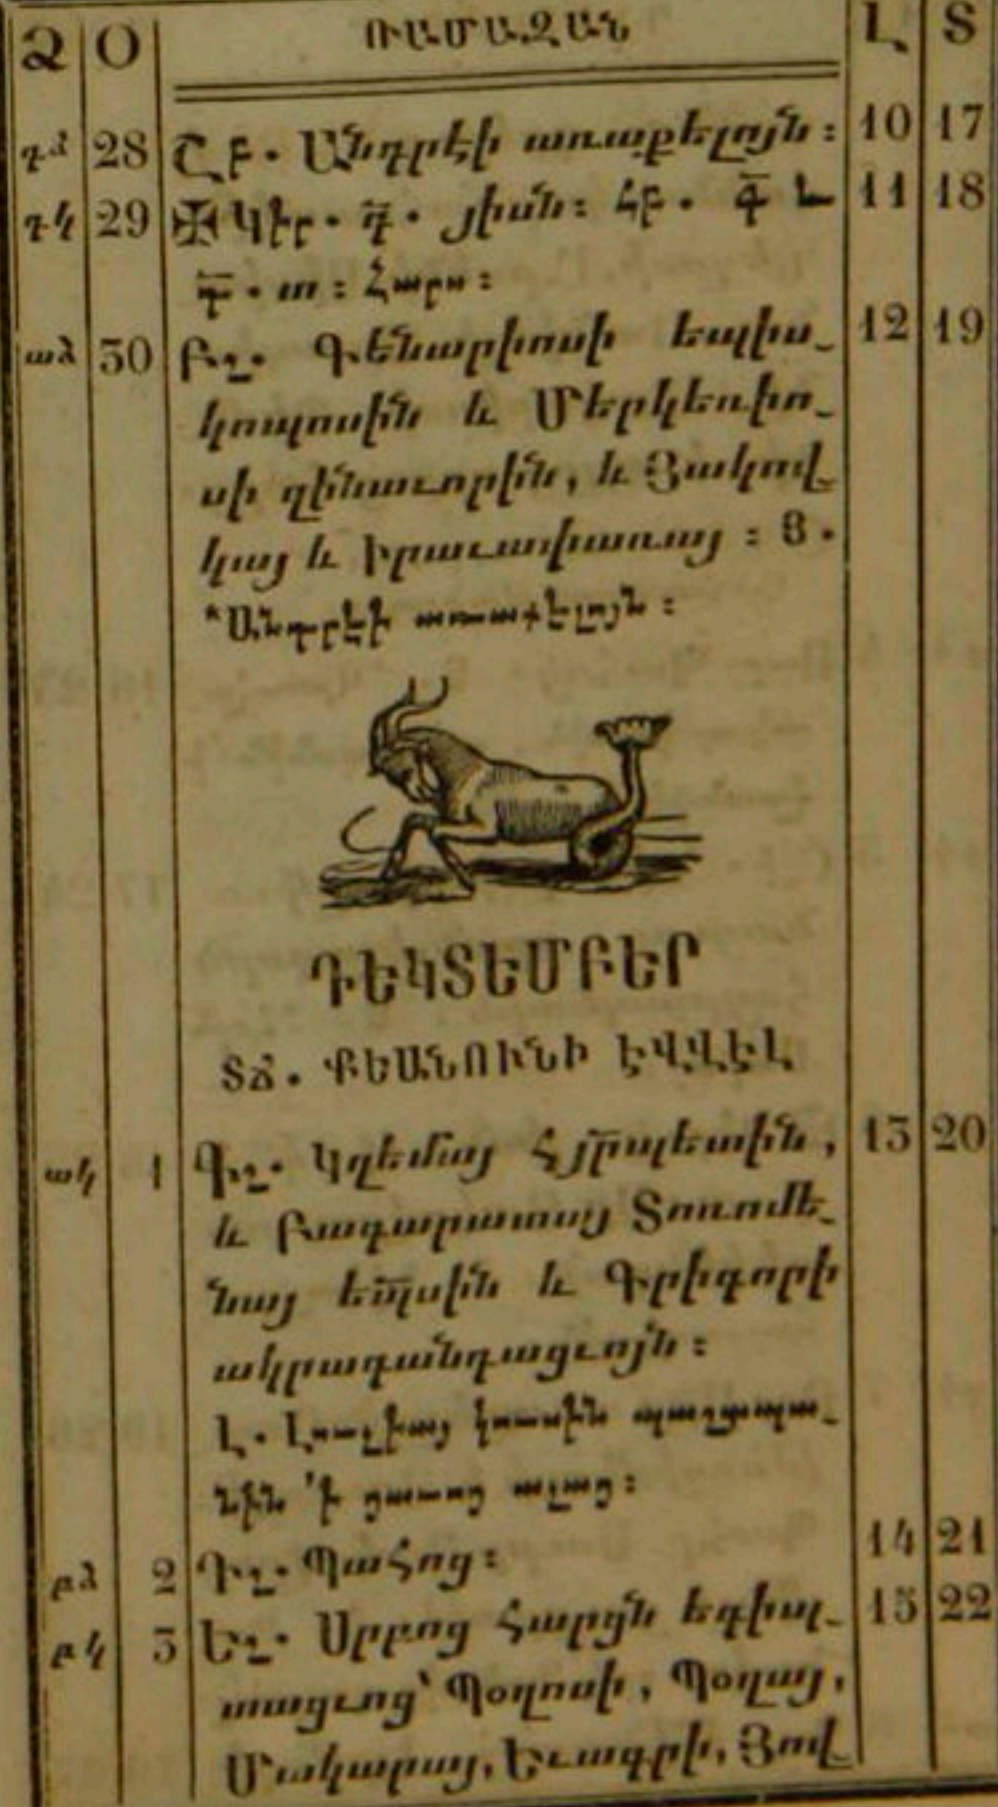 Ձ Օ ՌԱՄԱԶԱՆ Լ Տ
դձ 28 Շբ. Անդրէի առաքելոյն։ 10 17
դկ 29 Կիր. յիսն։ 11 18
տ։ Հարս։
աձ 30 Բշ. Գենարիոսի եպիս֊ 12 19
կոպոսին և Մերկեռիո֊
սի զինաւորին, և Յակով֊
կայ և իրաւափառայ։ Յ.
*Անդրէի առաքելոյն։
ԴԵԿՏԵՄԲԵՐ
ՏՃ. ՔԵԱՆՈՒՆԻ ԷՎՎԷԼ
ակ 1 Գշ. Կղեմայ Հյրպետին, 13 20
և Բագարատայ Տոռոմե֊
նայ եպսին և Գրիգորի
ակրագանդացւոյն։
Լ. Լուչիայ կուսին պաշտպա֊
նին ՚ի ցաւոց աչաց։
բձ 2 Դշ. Պահոց։ 14 21
բկ 3 Եշ. Սրբոց Հարցն եգիպ֊ 15 22
տացւոց՝ Պօղոսի, Պօղայ,
Մակարայ, Եւագրի, Յով֊